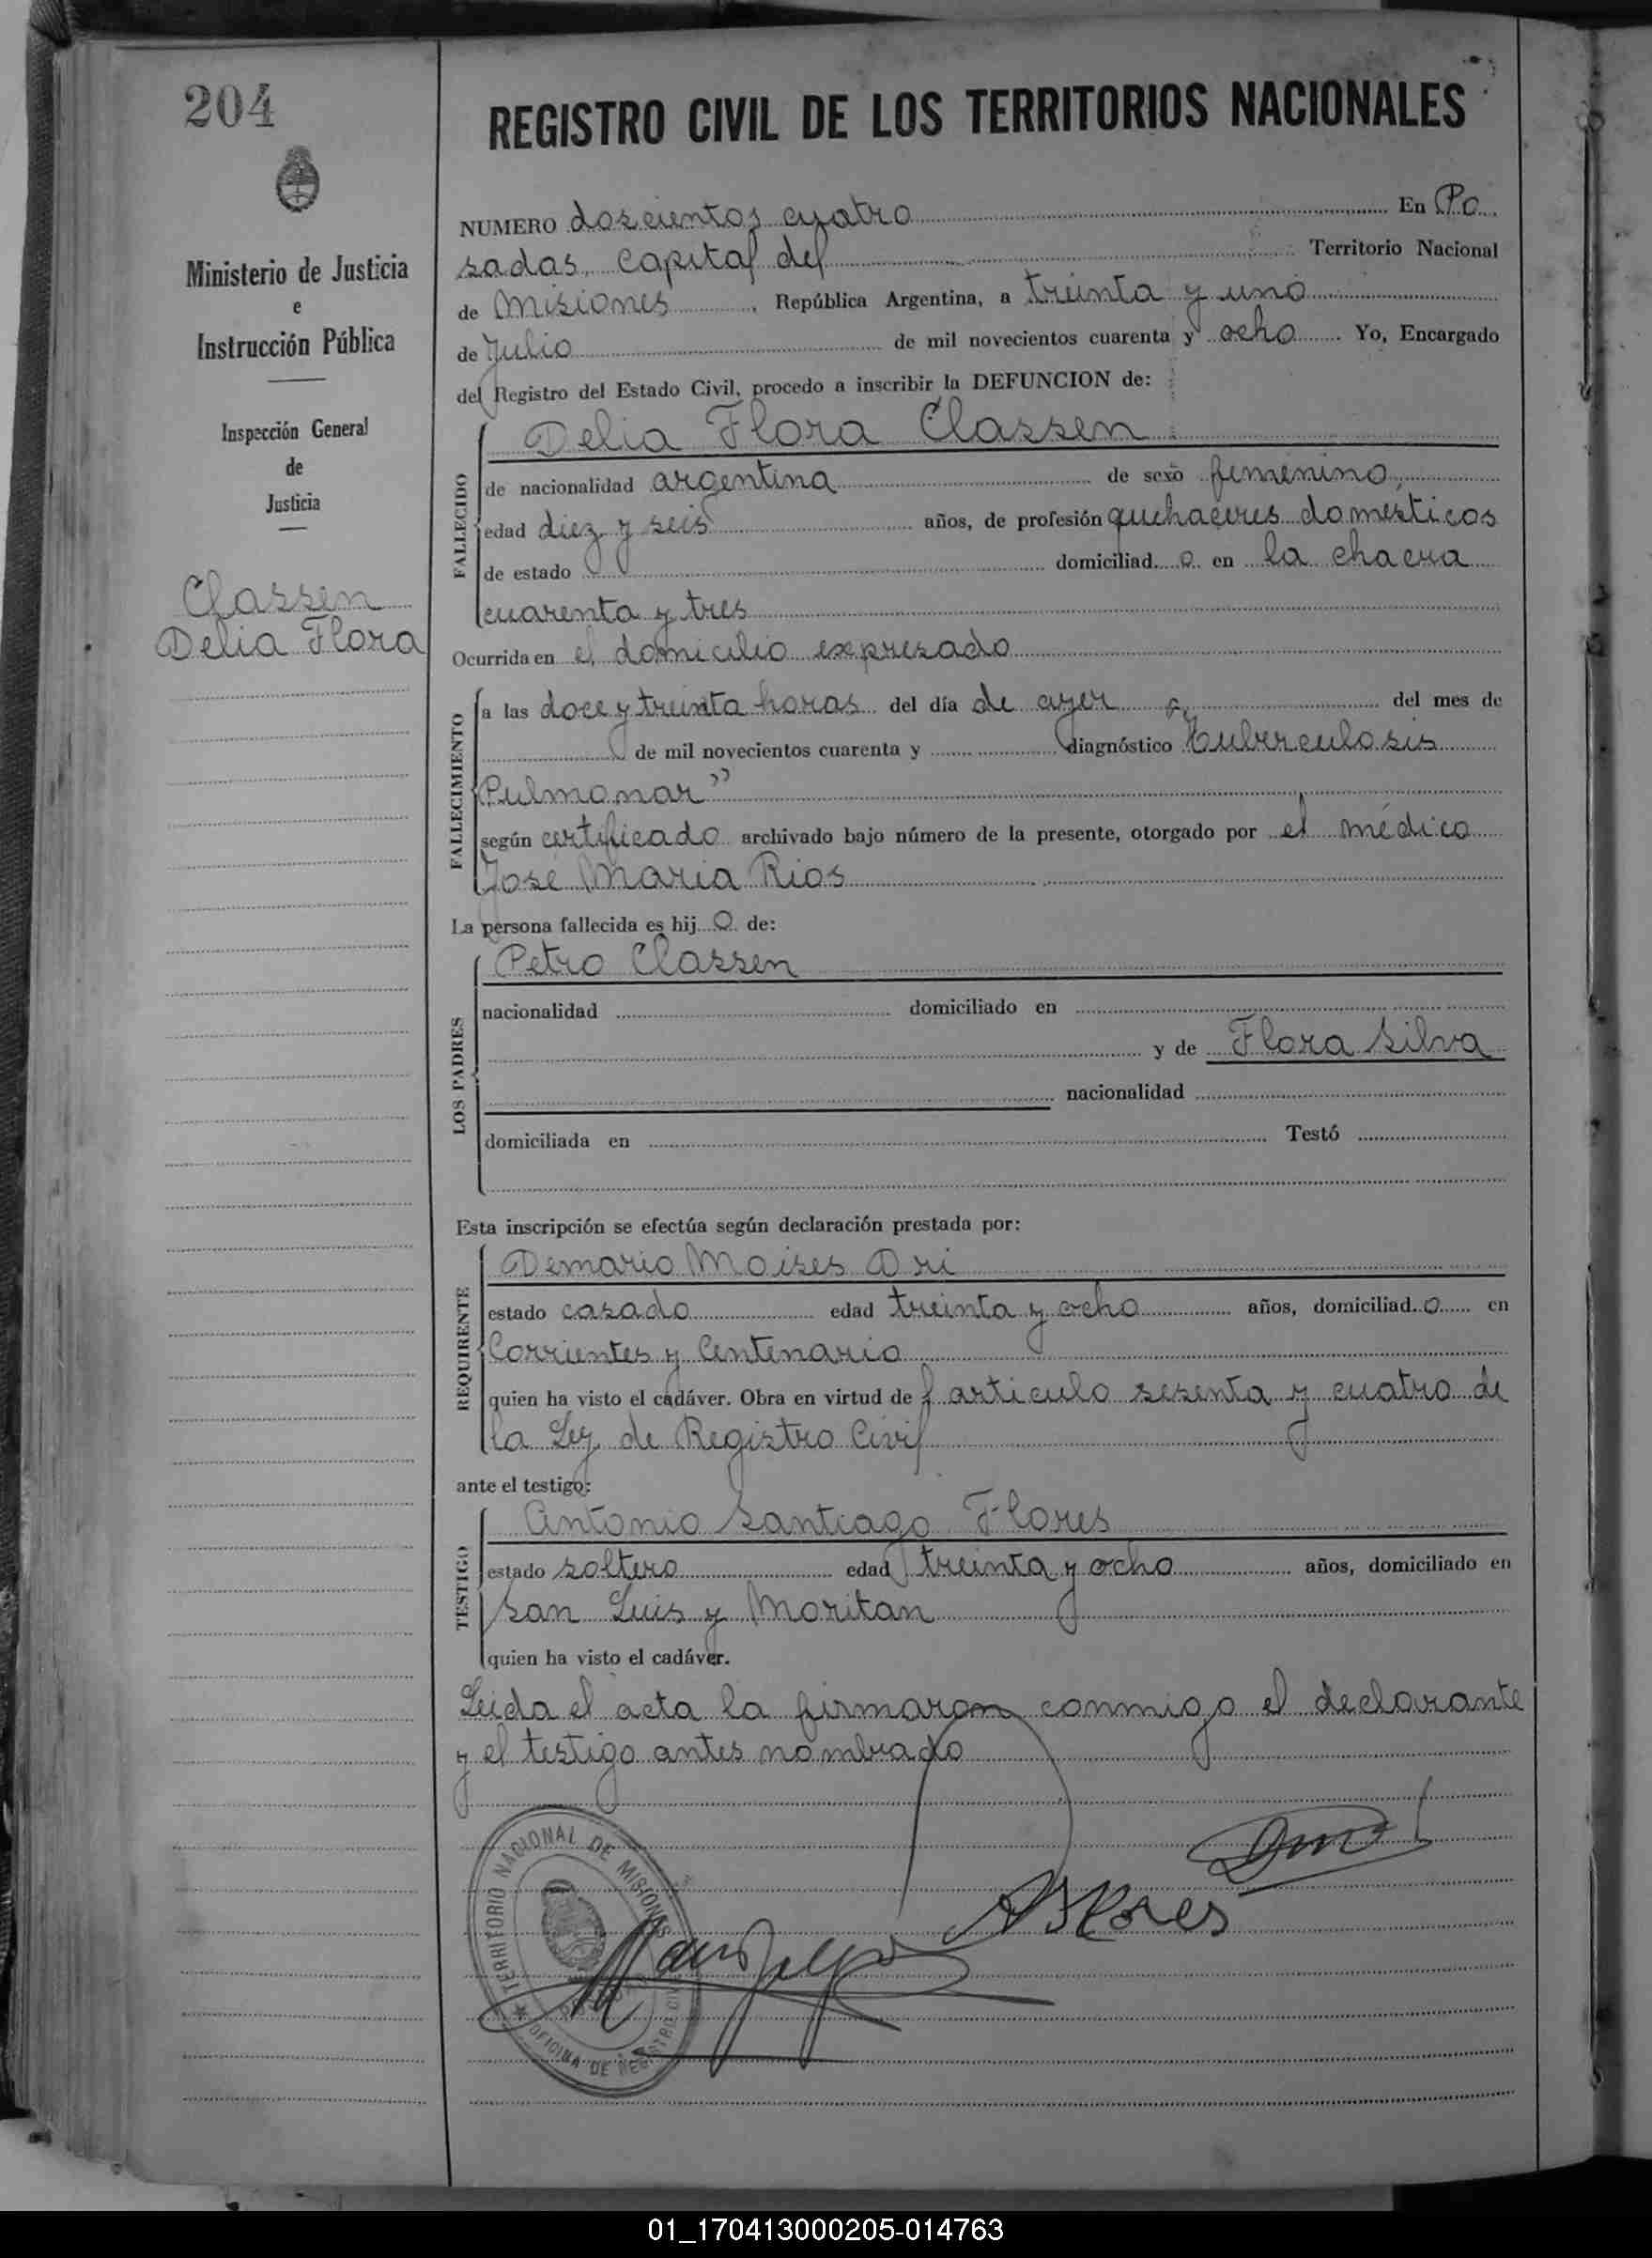 204
Ministerio de Justicia
e
Instrucción Pública
Inspección General
de
Justicia
Classen
Delia Flora
REGISTRO CIVIL DE LOS TERRITORIOS NACIONALES
NUMERO doscientos cuatro En Po
sadas, capital del Territorio Nacional
de Misiones, República Argentina, a treinta y uno
de Julio de mil novecientos cuarenta y ocho Yo, Encargado
del Registro del Estado Civil, procedo a inscribir la DEFUNCION de:
FALLECIDO
Delia Flora Classen
de nacionalidad argentina de sexo femenino,
edad diez y seis años, de profesión quehaceres domésticos
de estado domiciliad o en la chacra
cuarenta y tres
Ocurrida en el domicilio expresado
FALLECIMIENTO
a las doce y treinta horas del día de ayer del mes de
de mil novecientos cuarenta y diagnóstico "Tuberculosis
Pulmonar"
según certificado archivado bajo número de la presente, otorgado por el médico
José Maria Rios
La persona fallecida es hij o de:
LOS PADRES
Petro Classen
nacionalidad domiciliado en
y de Flora Silva
nacionalidad
domiciliada en Testó
Esta inscripción se efectúa según declaración prestada por:
REQUIRENTE
Demario Moises Dri
estado casado edad treinta y ocho años, domiciliad o en
Corrientes y Centenario
quien ha visto el cadáver. Obra en virtud de l articulo sesenta y cuatro de
la Ley de Registro Civil
ante el testigo:
TESTIGO
Antonio Santiago Flores
estado soltero edad treinta y ocho años, domiciliado en
San Luis y Moritan
quien ha visto el cadáver.
Leida el acta la firmaron conmigo el declarante
y el testigo antes nombrado
TERRITORIO NACIONAL DE MISIONES
OFICINA DE REGISTRO CIVIL
ASFlores
01_170413000205-014763